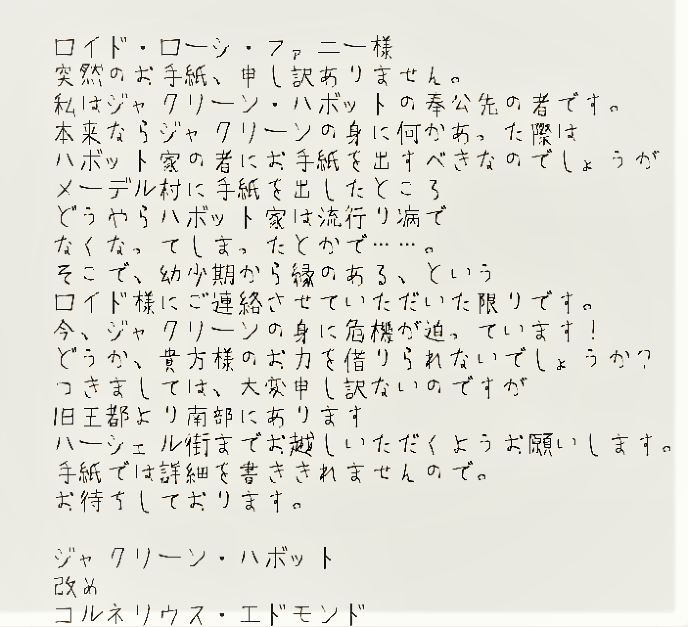 ロイド・ローシ・ファニー様
突然のお手紙、申し訳ありません。
私はジャクリーン・ハボットの奉公先の者です。
本来ならジャクリーンの身に何かあった際は
ハボット家の者にお手紙を出すべきなのでしょうが
メーデル村に手紙を出したところ
どうやらハボット家は流行り病で
なくなってしまったとかで……。
そこで、幼少期から縁のある、という
ロイド様にご連絡させていただいた限りです。
今、ジャクリーンの身に危機が迫っています!
どうか、貴方様のお力を借りられないでしょうか?
つきましては、大変申し訳ないのですが
旧王都より南部にあります
ハーシェル街までお越しいただくようお願いします。
手紙では詳細を書ききれませんので。
お待ちしております。
ジャクリーン・ハボット
改め
コルネリウス・エドモンド